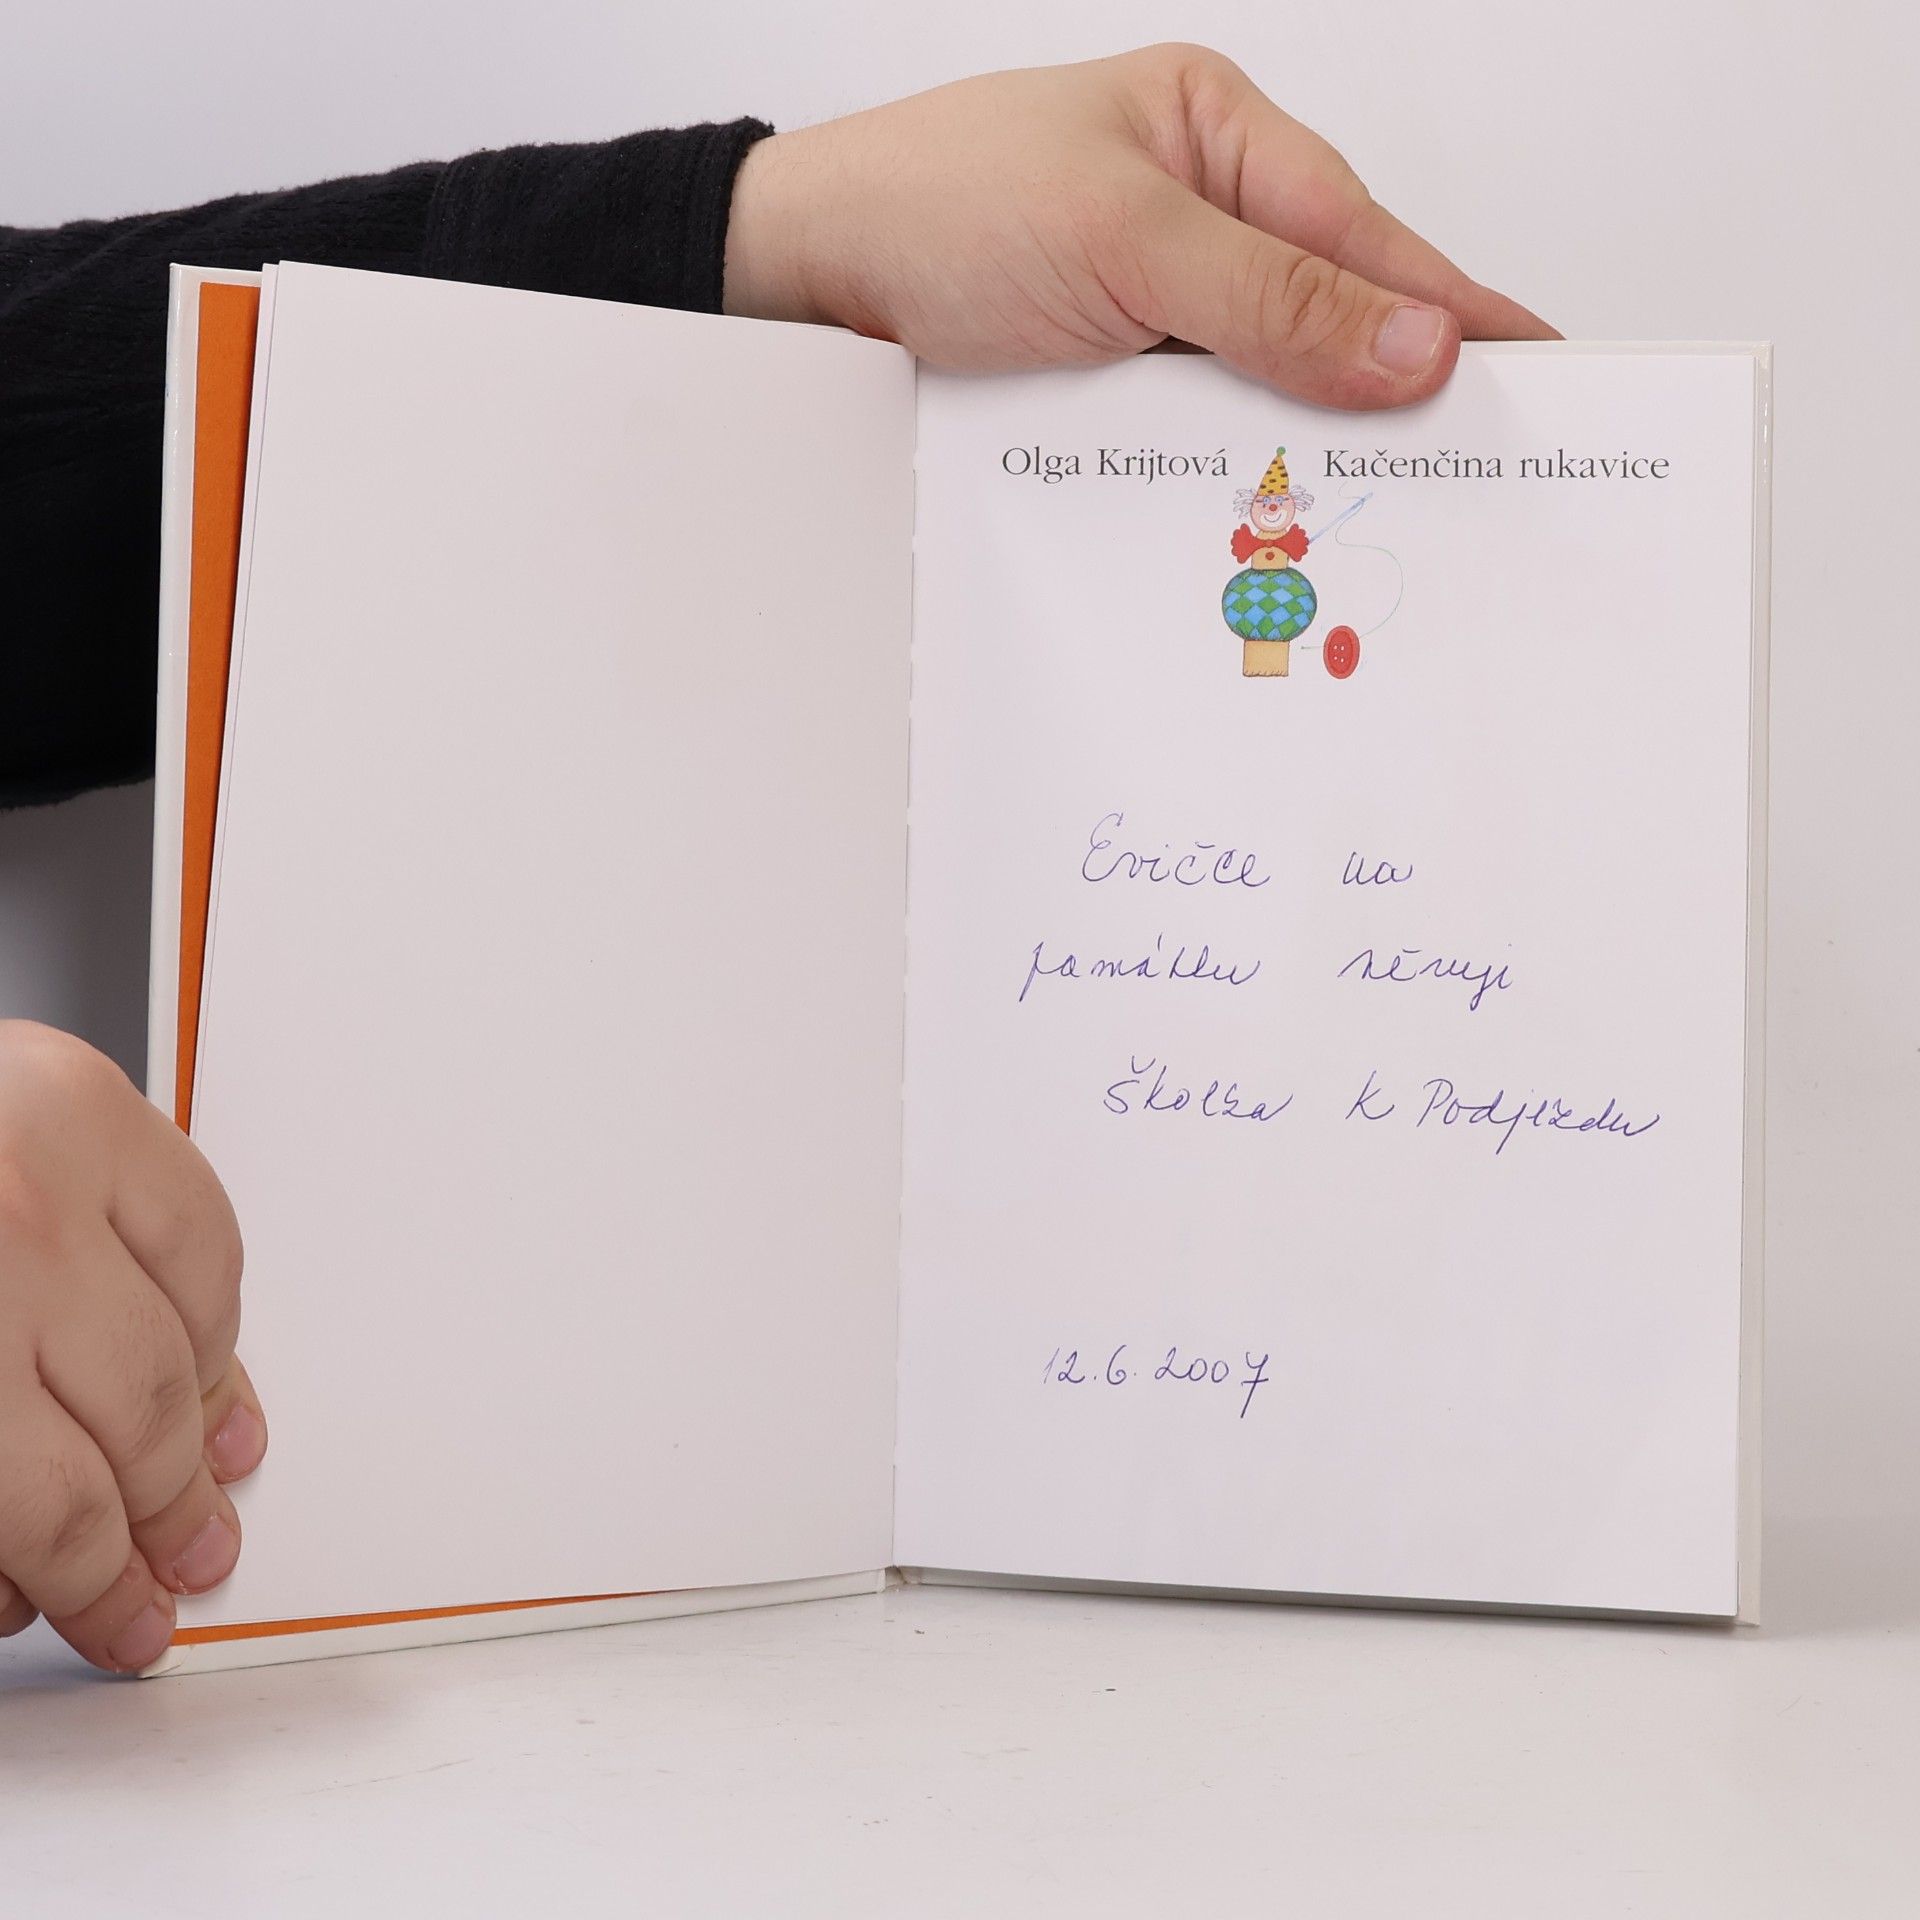 Olga Krijtová Kačenčina rukavice
Evičce na
památku věnuji
Školka K Podjezdu
12.6.2007